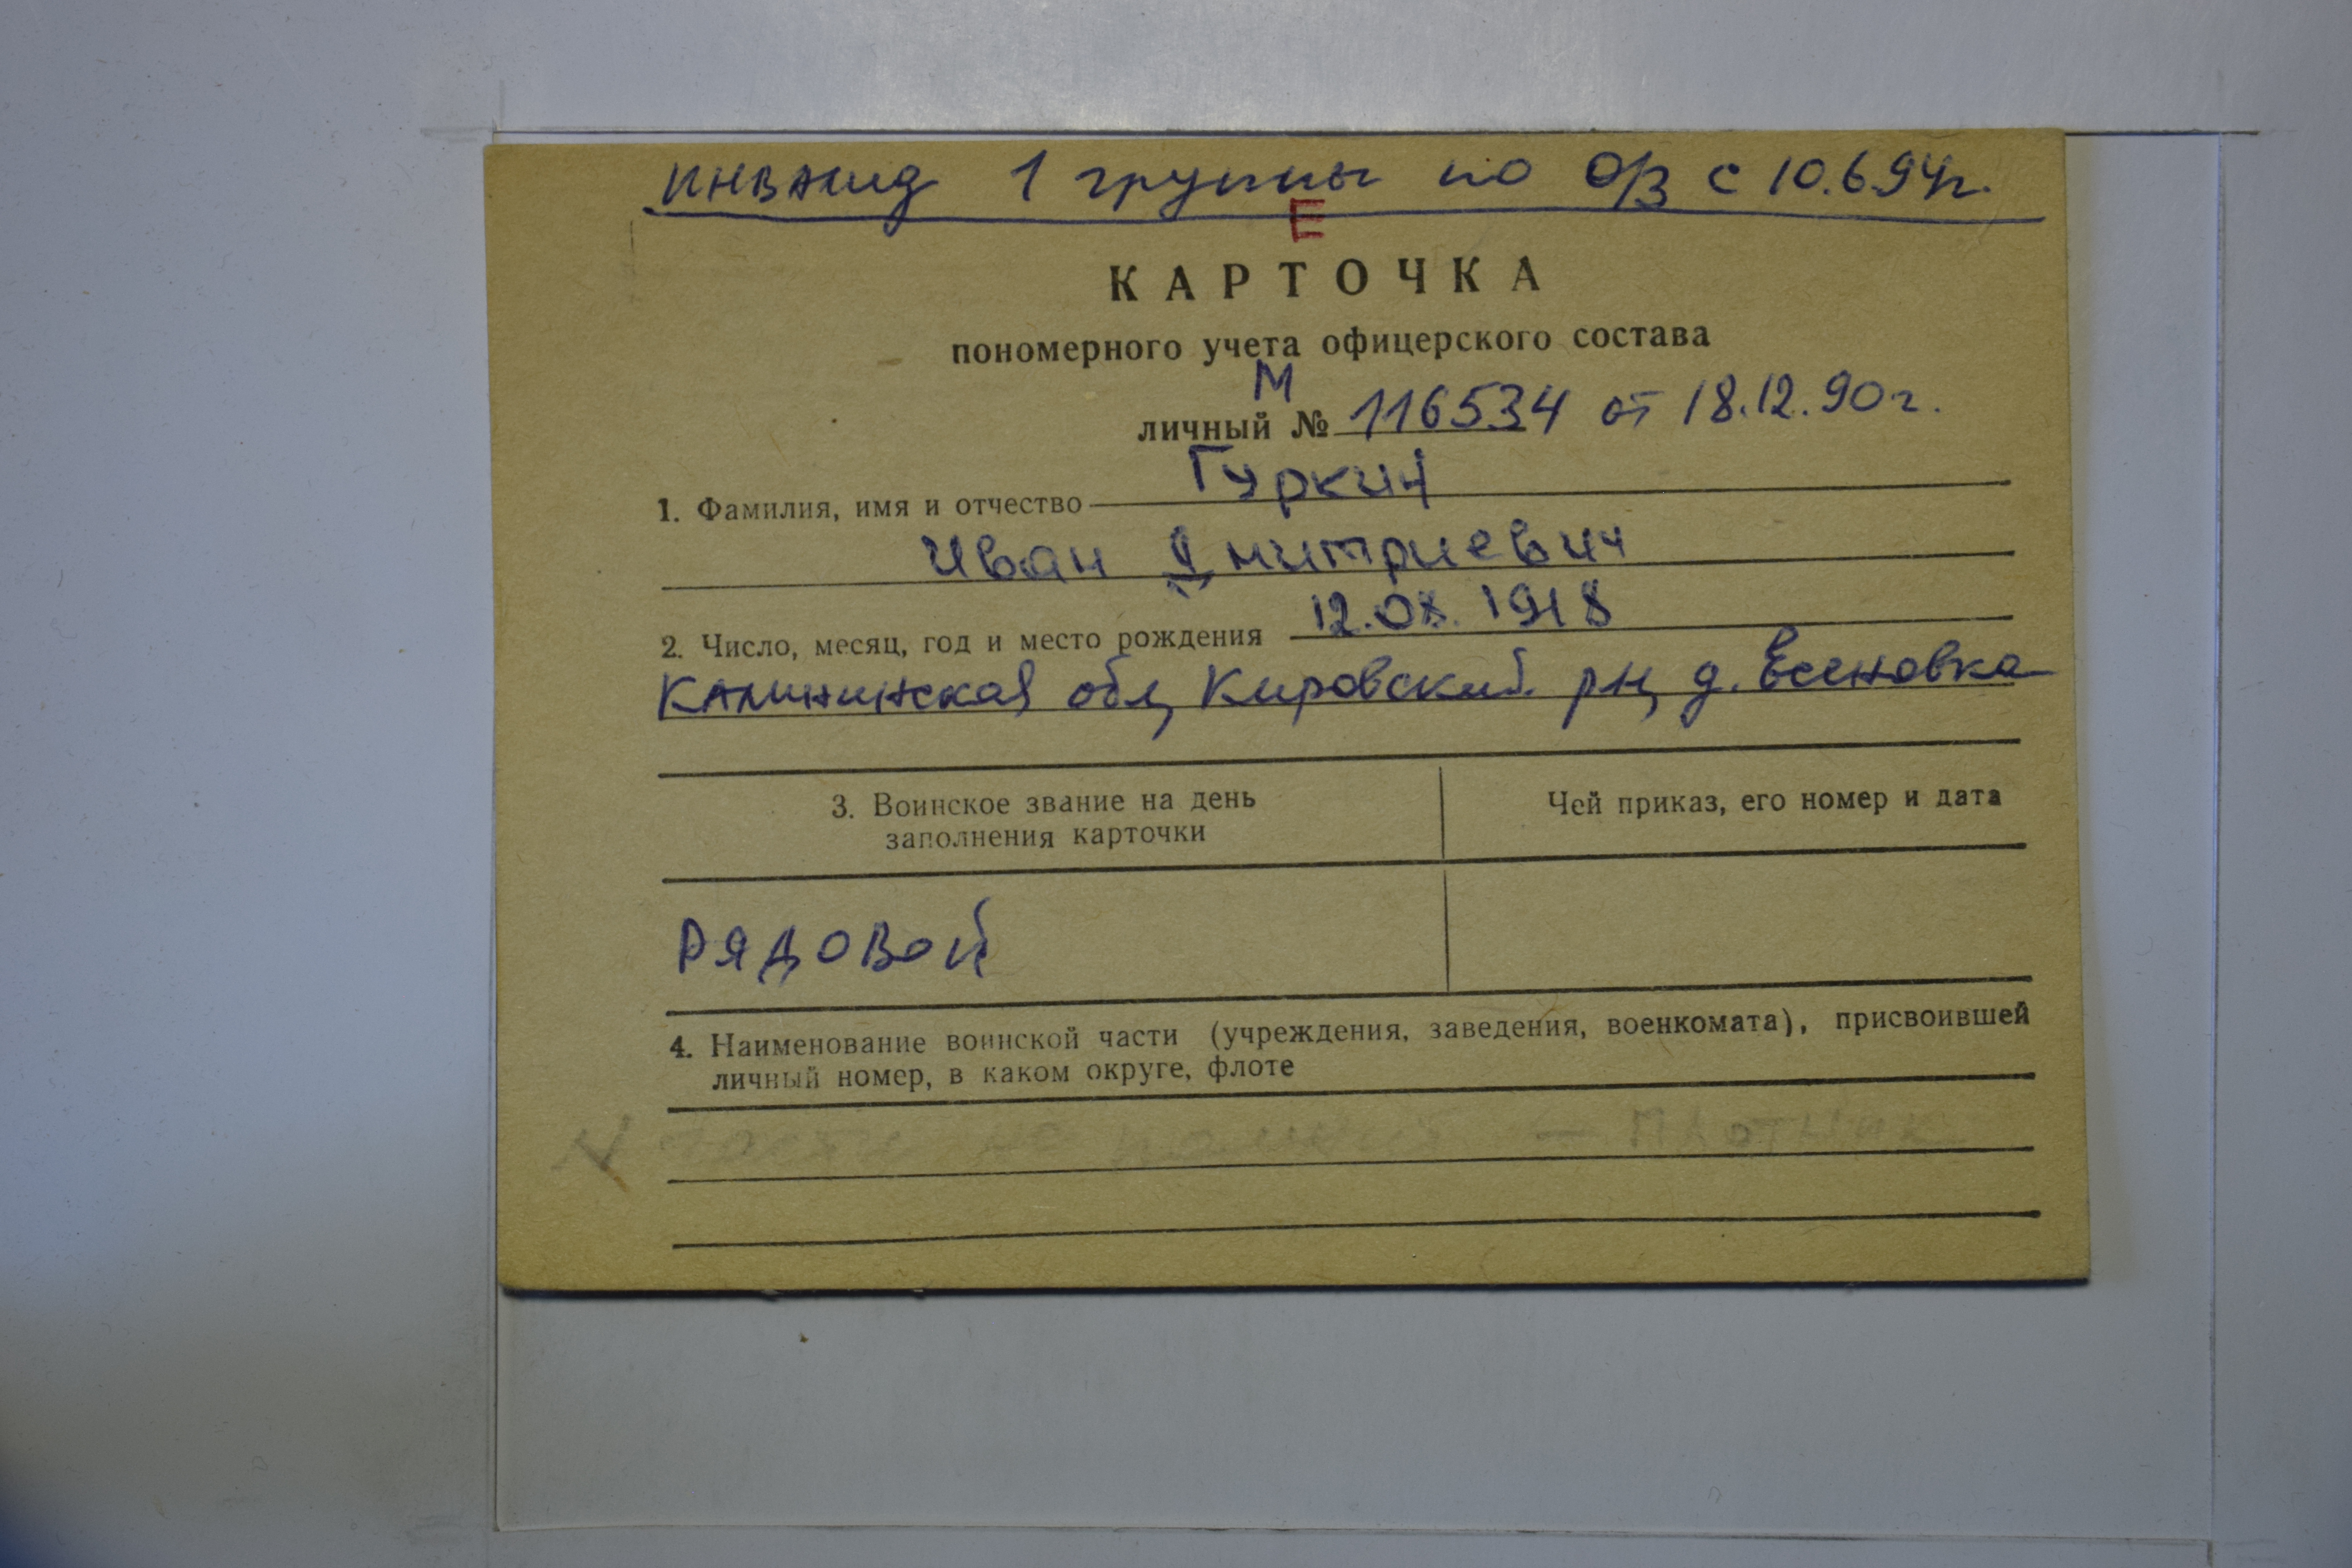 инвалид 1 группы по О/З с 10.6.94г.
Е
КАРТОЧКА
пономерного учета офицерского состава
М
личный № 116534 от 18.12.90г.
Гуркин
1. Фамилия, имя и отчество
Иван Дмитриевич
2. Число, месяц, год и место рождения 12.08.1918
Калининская обл, Кировский рн, д. Есеновка
3. Воинское звание на день
заполнения карточки
Чей приказ, его номер и дата
РЯДОВОЙ
4. Наименование воинской части (учреждения, заведения, военкомата), присвоившей
личный номер, в каком округе, флоте
части не помнит — плотник